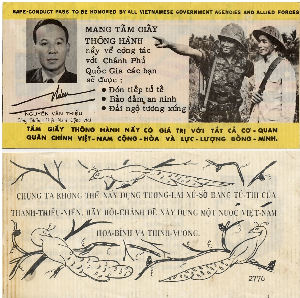 SAFE-CONDUCT PASS TO BE HONORED BY ALL VIETNAMESE GOVERNMENT AGENCIES AND ALLIED FORCES
MANG TẤM GIẤY
THÔNG HÀNH
nầy về cộng tác
với Chánh Phủ
Quốc Gia các bạn
sẽ được :
• Đón tiếp tử tế
• Bảo đảm an ninh
• Đãi ngộ tương xứng
NGUYỄN VĂN THIỆU
TẤM GIẤY THÔNG HÀNH NẦY CÓ GIÁ TRỊ VỚI TẤT CẢ CƠ-QUAN
QUÂN CHÍNH VIỆT-NAM CỘNG-HÒA VÀ LỰC-LƯỢNG ĐỒNG-MINH.
CHÚNG TA KHÔNG THỂ XÂY DỰNG TƯƠNG-LAI XỨ-SỞ BẰNG TỬ-THI CỦA
THANH-THIẾU-NIÊN. HÃY HỒI-CHÁNH ĐỂ XÂY DỰNG MỘT NƯỚC VIỆT-NAM
HÒA-BÌNH VÀ THỊNH-VƯỢNG.
2776